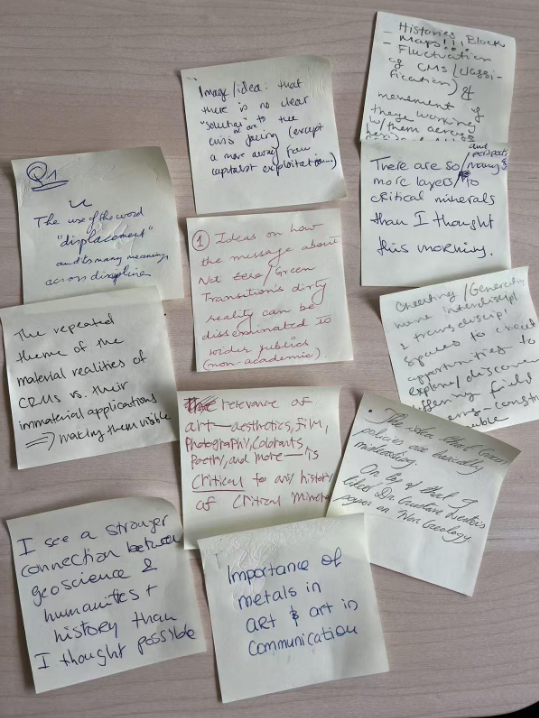 - Histories Black
- Maps!!!
- Fluctuation
of CMs (classi-
fication) &
movement of
those working
w/them across
Image/idea: that
there is no clear
"solution" to the
crisis facing (except
a move away from
capitalist exploitation...)
Q1
The use of the word
"displacement"
and its many meanings
across disciplines
There are so
more layers to
critical minerals
than I thought
this morning.
① Ideas on how
the message about
Net Zero/Green
Transition's dirty
reality can be
disseminated to
wider publics
(non-academic).
The repeated
theme of the
material realities of
CRMs vs. their
immaterial applications
⇒ making them visible
Creating/Generating
more interdiscipl
& transdiscipl
spaces to
opportunities to
explore/discover
differing field
relevance of
art—aesthetics, Film,
Photography, Colorants,
Poetry, and more—is
Critical to any history
of Critical Minerals
• The idea that Green
policies are basically
misleading.
On top of that I
liked Dr.
paper on Geology
I see a stronger
connection between
geoscience &
humanities +
history than
I thought possible
Importance of
metals in
art & art in
communication